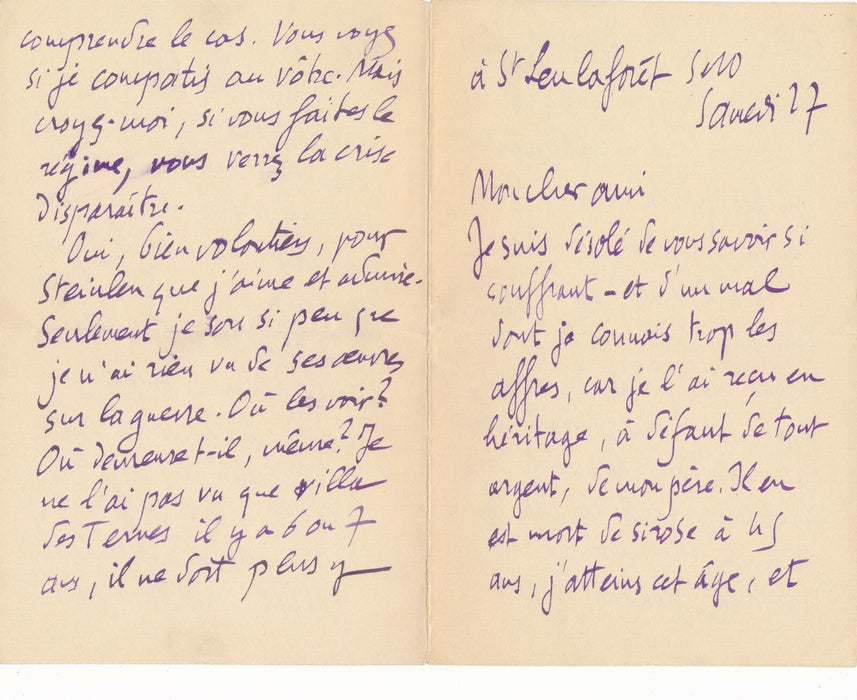 à St Leu la forêt S&O
Samedi 27
Mon cher ami
Je suis désolé de vous savoir si
souffrant – et d'un mal
dont je connais trop les
affres, car je l'ai reçu en
héritage, à défaut de tout
argent, de mon père. Il en
est mort de sirose à 45
ans, j'atteins cet âge, et
comprendre le cas. Vous voyez
si je compatis au vôtre. Mais
croyez-moi, si vous faites le
régime, vous verrez la crise
disparaître.
Oui, bien volontiers, pour
Steinlen que j'aime et admire.
Seulement je sors si peu que
je n'ai rien vu de ses œuvres
sur la guerre. Où les voir?
Où demeure-t-il, même? Je
ne l'ai pas vu que villa
des Ternes il y a 6 ou 7
ans, il ne doit plus y